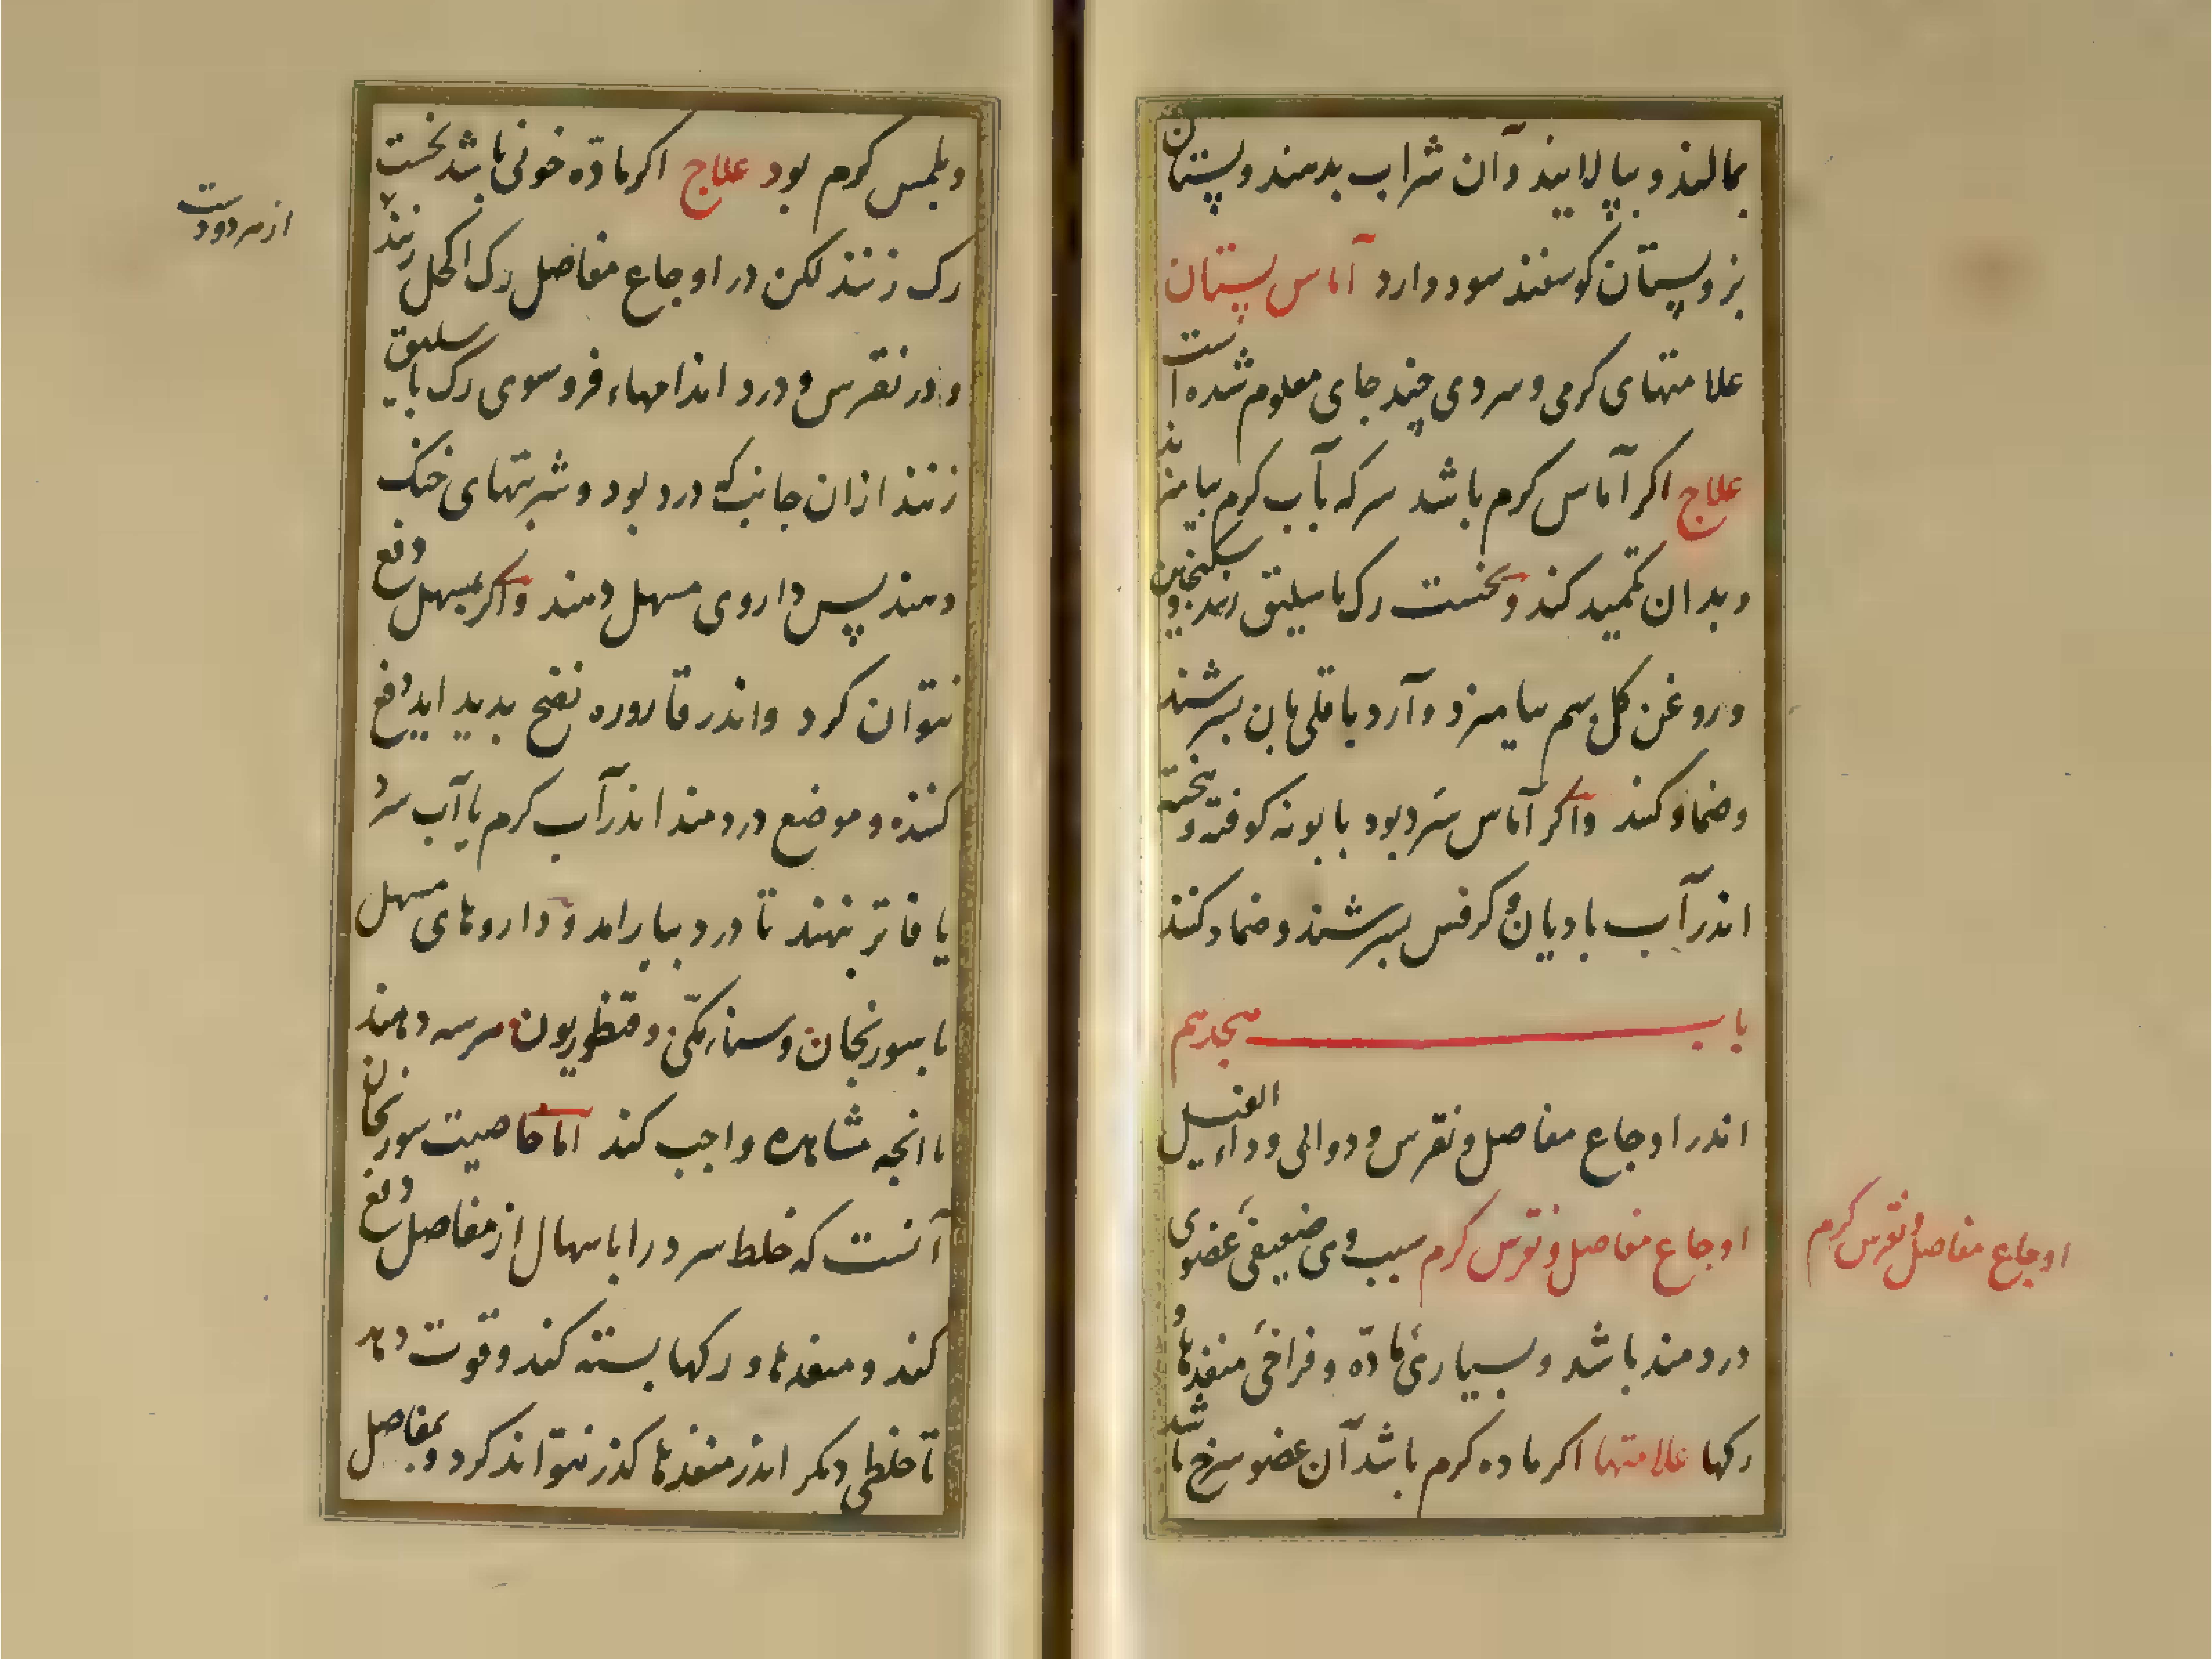 بمالند و بپالایند و آن شراب بدهند و پستان
بز و پستان کوسفند سود دارد آماس پستان
علامتهای کرمی و سردی چند جای معلوم شده است
علاج اکر آماس کرم باشد سرکه بآب کرم بیامیزند
و بدان تکمید کند و نخست رک باسلیق زنند و سکنجبین
و روغن کل بهم بیامیزد و آرد باقلی بان بسرشند
و ضماد کند و اکر آماس سرد بود بابونه کوفته و بیخته
اندر آب بادیان و کرفس بسرشند و ضماد کنند
باب هیجدهم
اندر اوجاع مفاصل و نقرس و دوالی و داء الفیل
اوجاع مفاصل و نقرس کرم سبب وی ضعیفی عضوی
دردمند باشد و بسیاری ماده و فراخی منفذها و
رکها علامتها اکر ماده کرم باشد آن عضو سرخ باشد
اوجاع مفاصل و نقرس کرم
و بلمس کرم بود علاج اکر ماده خونی باشد نخست
رک زنند لکن در اوجاع مفاصل رک اکحل زنند
و در نقرس و درد اندامهاء فروسوی رک باسلیق
زنند از ان جانب که درد بود و شربتهای خنک
دهند پس داروی مسهل دهند و اکر بمسهل دفع
نتوان کرد و اندر قاروره نضج بدید اید دفع
کننده و موضع دردمند اندر آب کرم یا آب سرد
یا فاتر نهند تا درد بیارامد و داروهای مسهل
با سورنجان و سناء مکی و قنطوریون هر سه دهند
با انجه مشاهده واجب کند اما خاصیت سورنجان
آنست که خلط سرد را باسهال از مفاصل دفع
کند و منفذها و رکها بسته کند و قوت دهد
تا خلطی دیکر اندر منفذها کذر نتواند کرد و بمفاصل
از هر دو دست